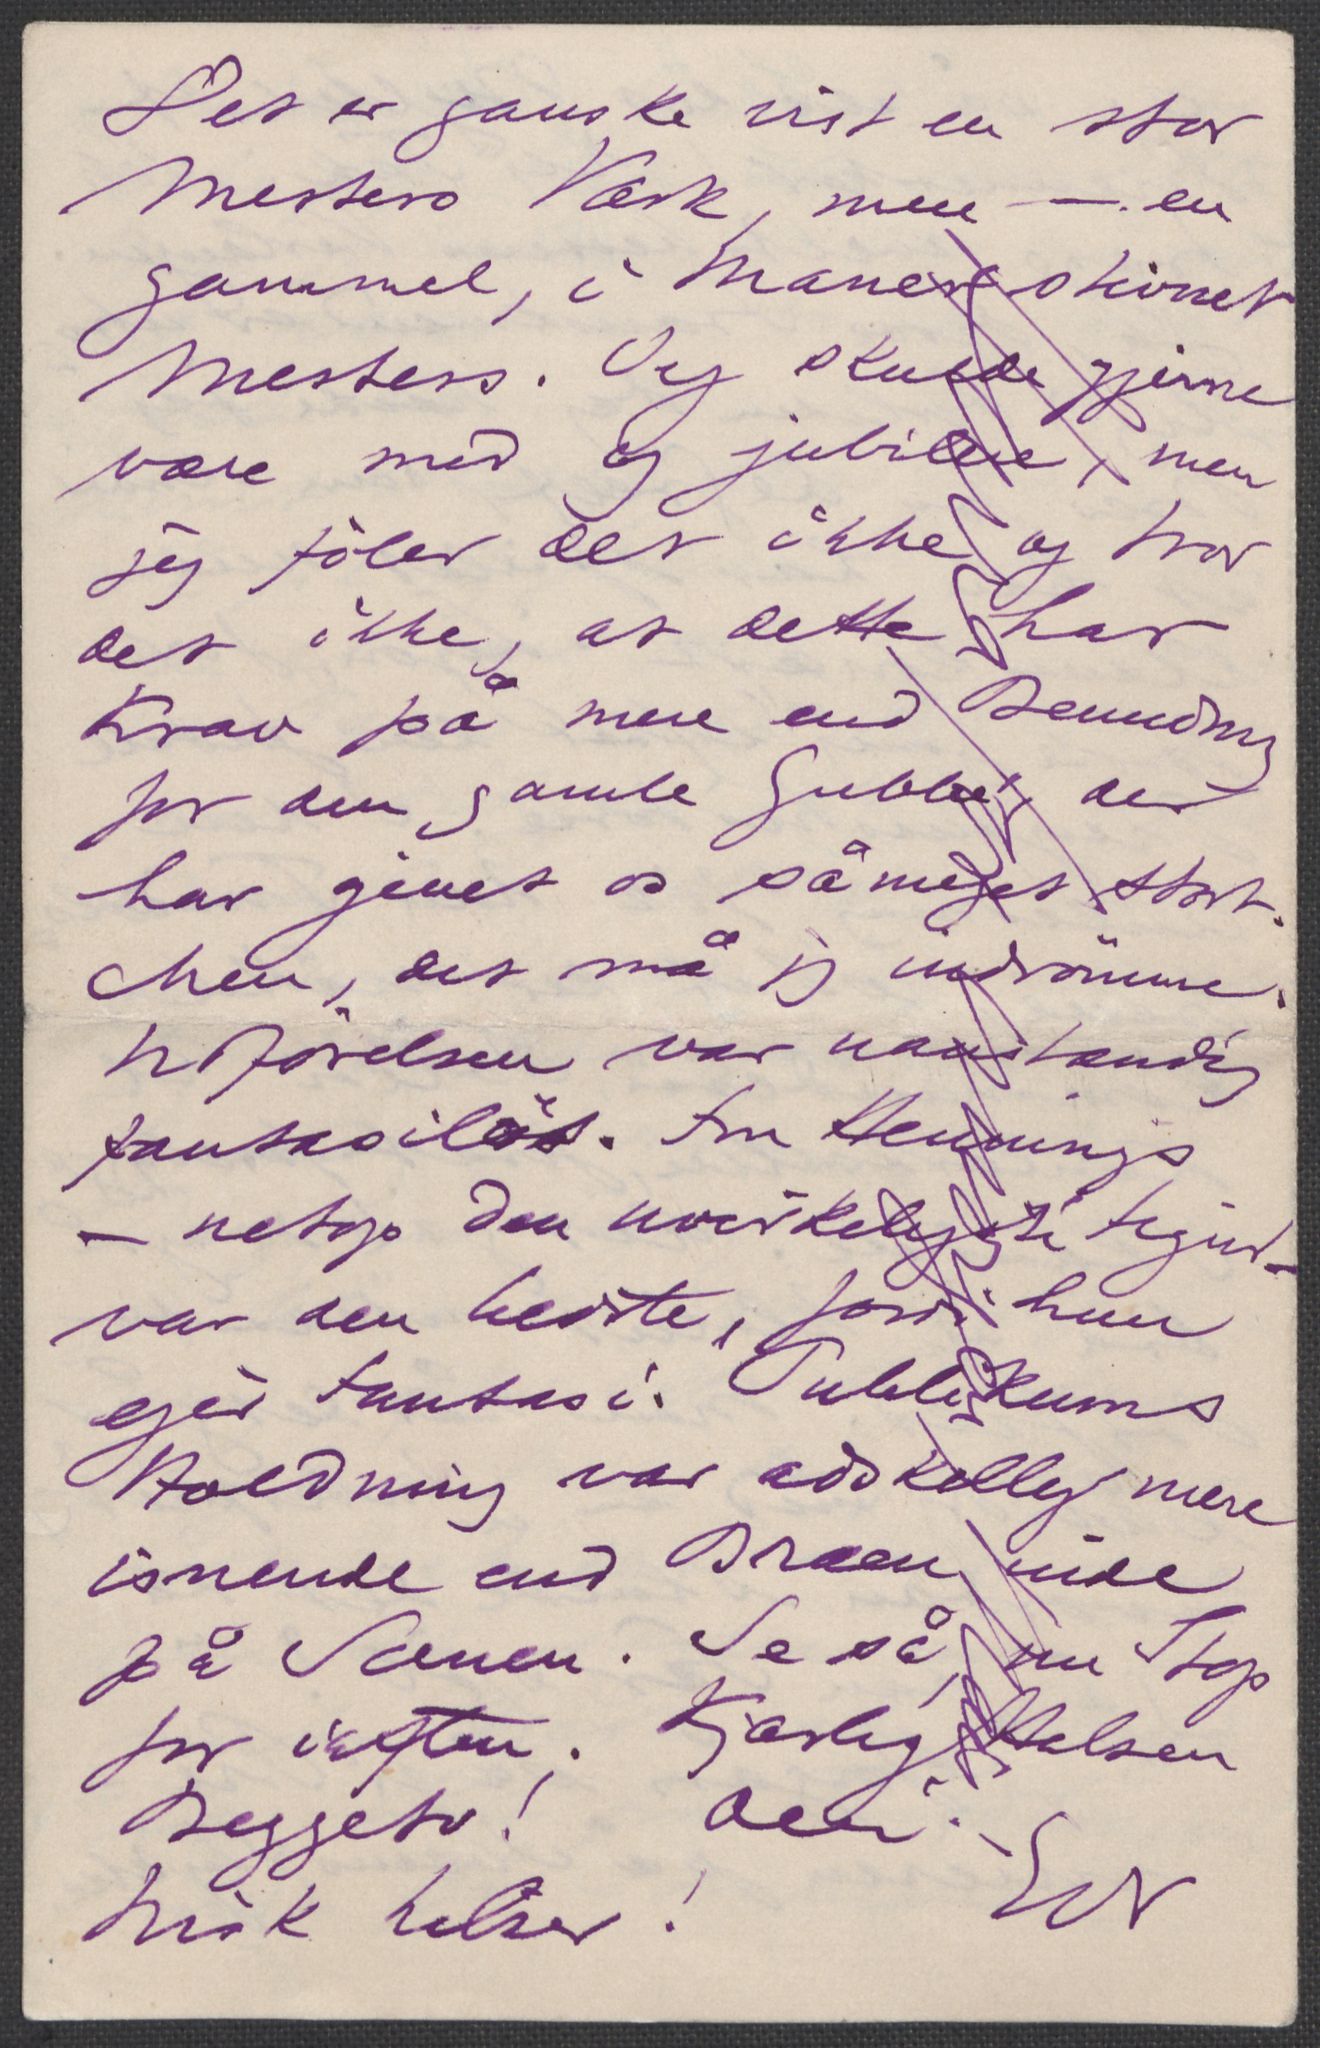 Det er ganske vist en stor
Mesters Værk, men — en
gammel, i Maner stivnet
Mesters. Jeg skulde gjerne
være med og jubilere, men
jeg föler det ikke og tror
det ikke, at dette har
Krav på mere end Beundring
for den gamle Gubbe, der
har givet os såmeget stort.
Men, det må jeg indrömme.
Udförelsen var uanstændig
fantasilös. Fru Hennings
— netop den uvirkeligste Figur —
var den bedste, fordi hun
ejer Fantasi. Publikums
Holdning var adskillig mere
isnende end Bræen inde
på Scenen. Se så, nu Stop
for iaften. Kjærlig Hilsen
Beggeto! Deres
Frisk hilser!